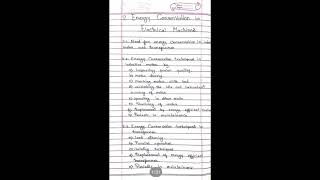 Energy Conservation in
Electrical Machines
2.1. Need for energy Conservation in
motor and transformer
2.2. Energy Conservation techniques in
induction motor by
a) Improving power quality
b) motor survey
c) matching motor with load
d) minimizing the idle and redundant
running of motor
e) operating in star mode
f) Rewinding of motor
g) Replacement by energy efficient motor
h) Periodic maintenance
2.3. Energy Conservation techniques in
transformer
a) Load sharing
b) Parallel operation
c) Isolating techniques
d) Replacement of energy efficient
transformers
e) Periodic maintenance